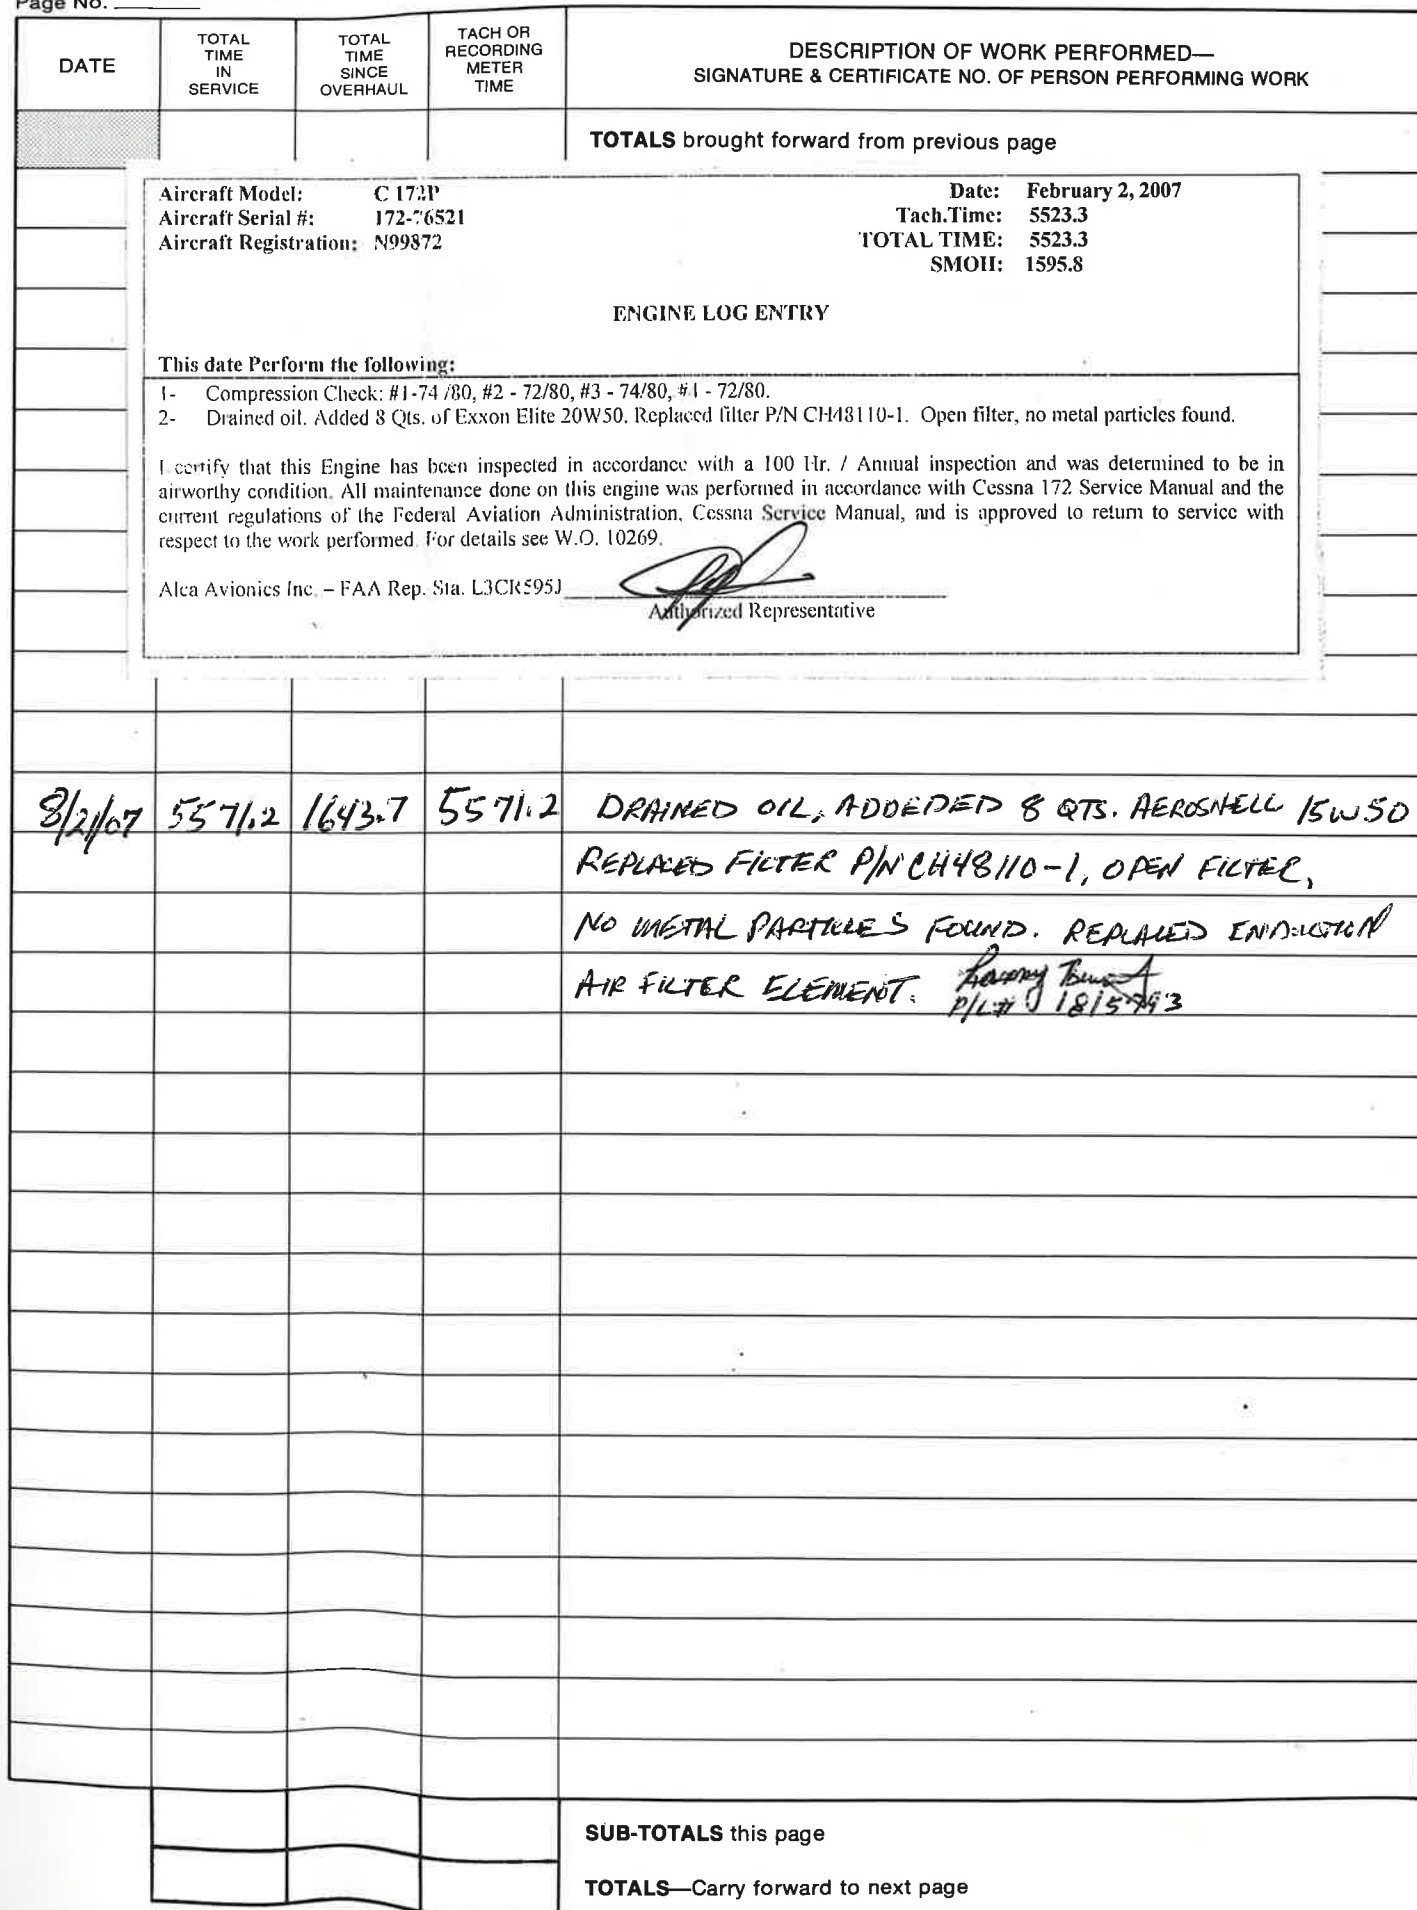 Page No.
DATE
TOTAL TIME IN SERVICE
TOTAL TIME SINCE OVERHAUL
TACH OR RECORDING METER TIME
DESCRIPTION OF WORK PERFORMED—
SIGNATURE & CERTIFICATE NO. OF PERSON PERFORMING WORK
TOTALS brought forward from previous page
Aircraft Model: C 172P Date: February 2, 2007
Aircraft Serial #: 172-76521 Tach.Time: 5523.3
Aircraft Registration: N99872 TOTAL TIME: 5523.3
SMOH: 1595.8
ENGINE LOG ENTRY
This date Perform the following:
1- Compression Check: #1-74 /80, #2 - 72/80, #3 - 74/80, #4 - 72/80.
2- Drained oil. Added 8 Qts. of Exxon Elite 20W50. Replaced filter P/N CH48110-1. Open filter, no metal particles found.
I certify that this Engine has been inspected in accordance with a 100 Hr. / Annual inspection and was determined to be in
airworthy condition. All maintenance done on this engine was performed in accordance with Cessna 172 Service Manual and the
current regulations of the Federal Aviation Administration, Cessna Service Manual, and is approved to return to service with
respect to the work performed. For details see W.O. 10269.
Alca Avionics Inc. – FAA Rep. Sta. L3CR595J
Authorized Representative
8/21/07 5571.2 1643.7 5571.2 DRAINED OIL, ADDEDED 8 QTS. AEROSHELL 15W50
REPLACED FILTER P/N CH48110-1, OPEN FILTER,
NO METAL PARTICLES FOUND. REPLACED ENDUCTION
AIR FILTER ELEMENT.
P/L# 1815793
SUB-TOTALS this page
TOTALS—Carry forward to next page